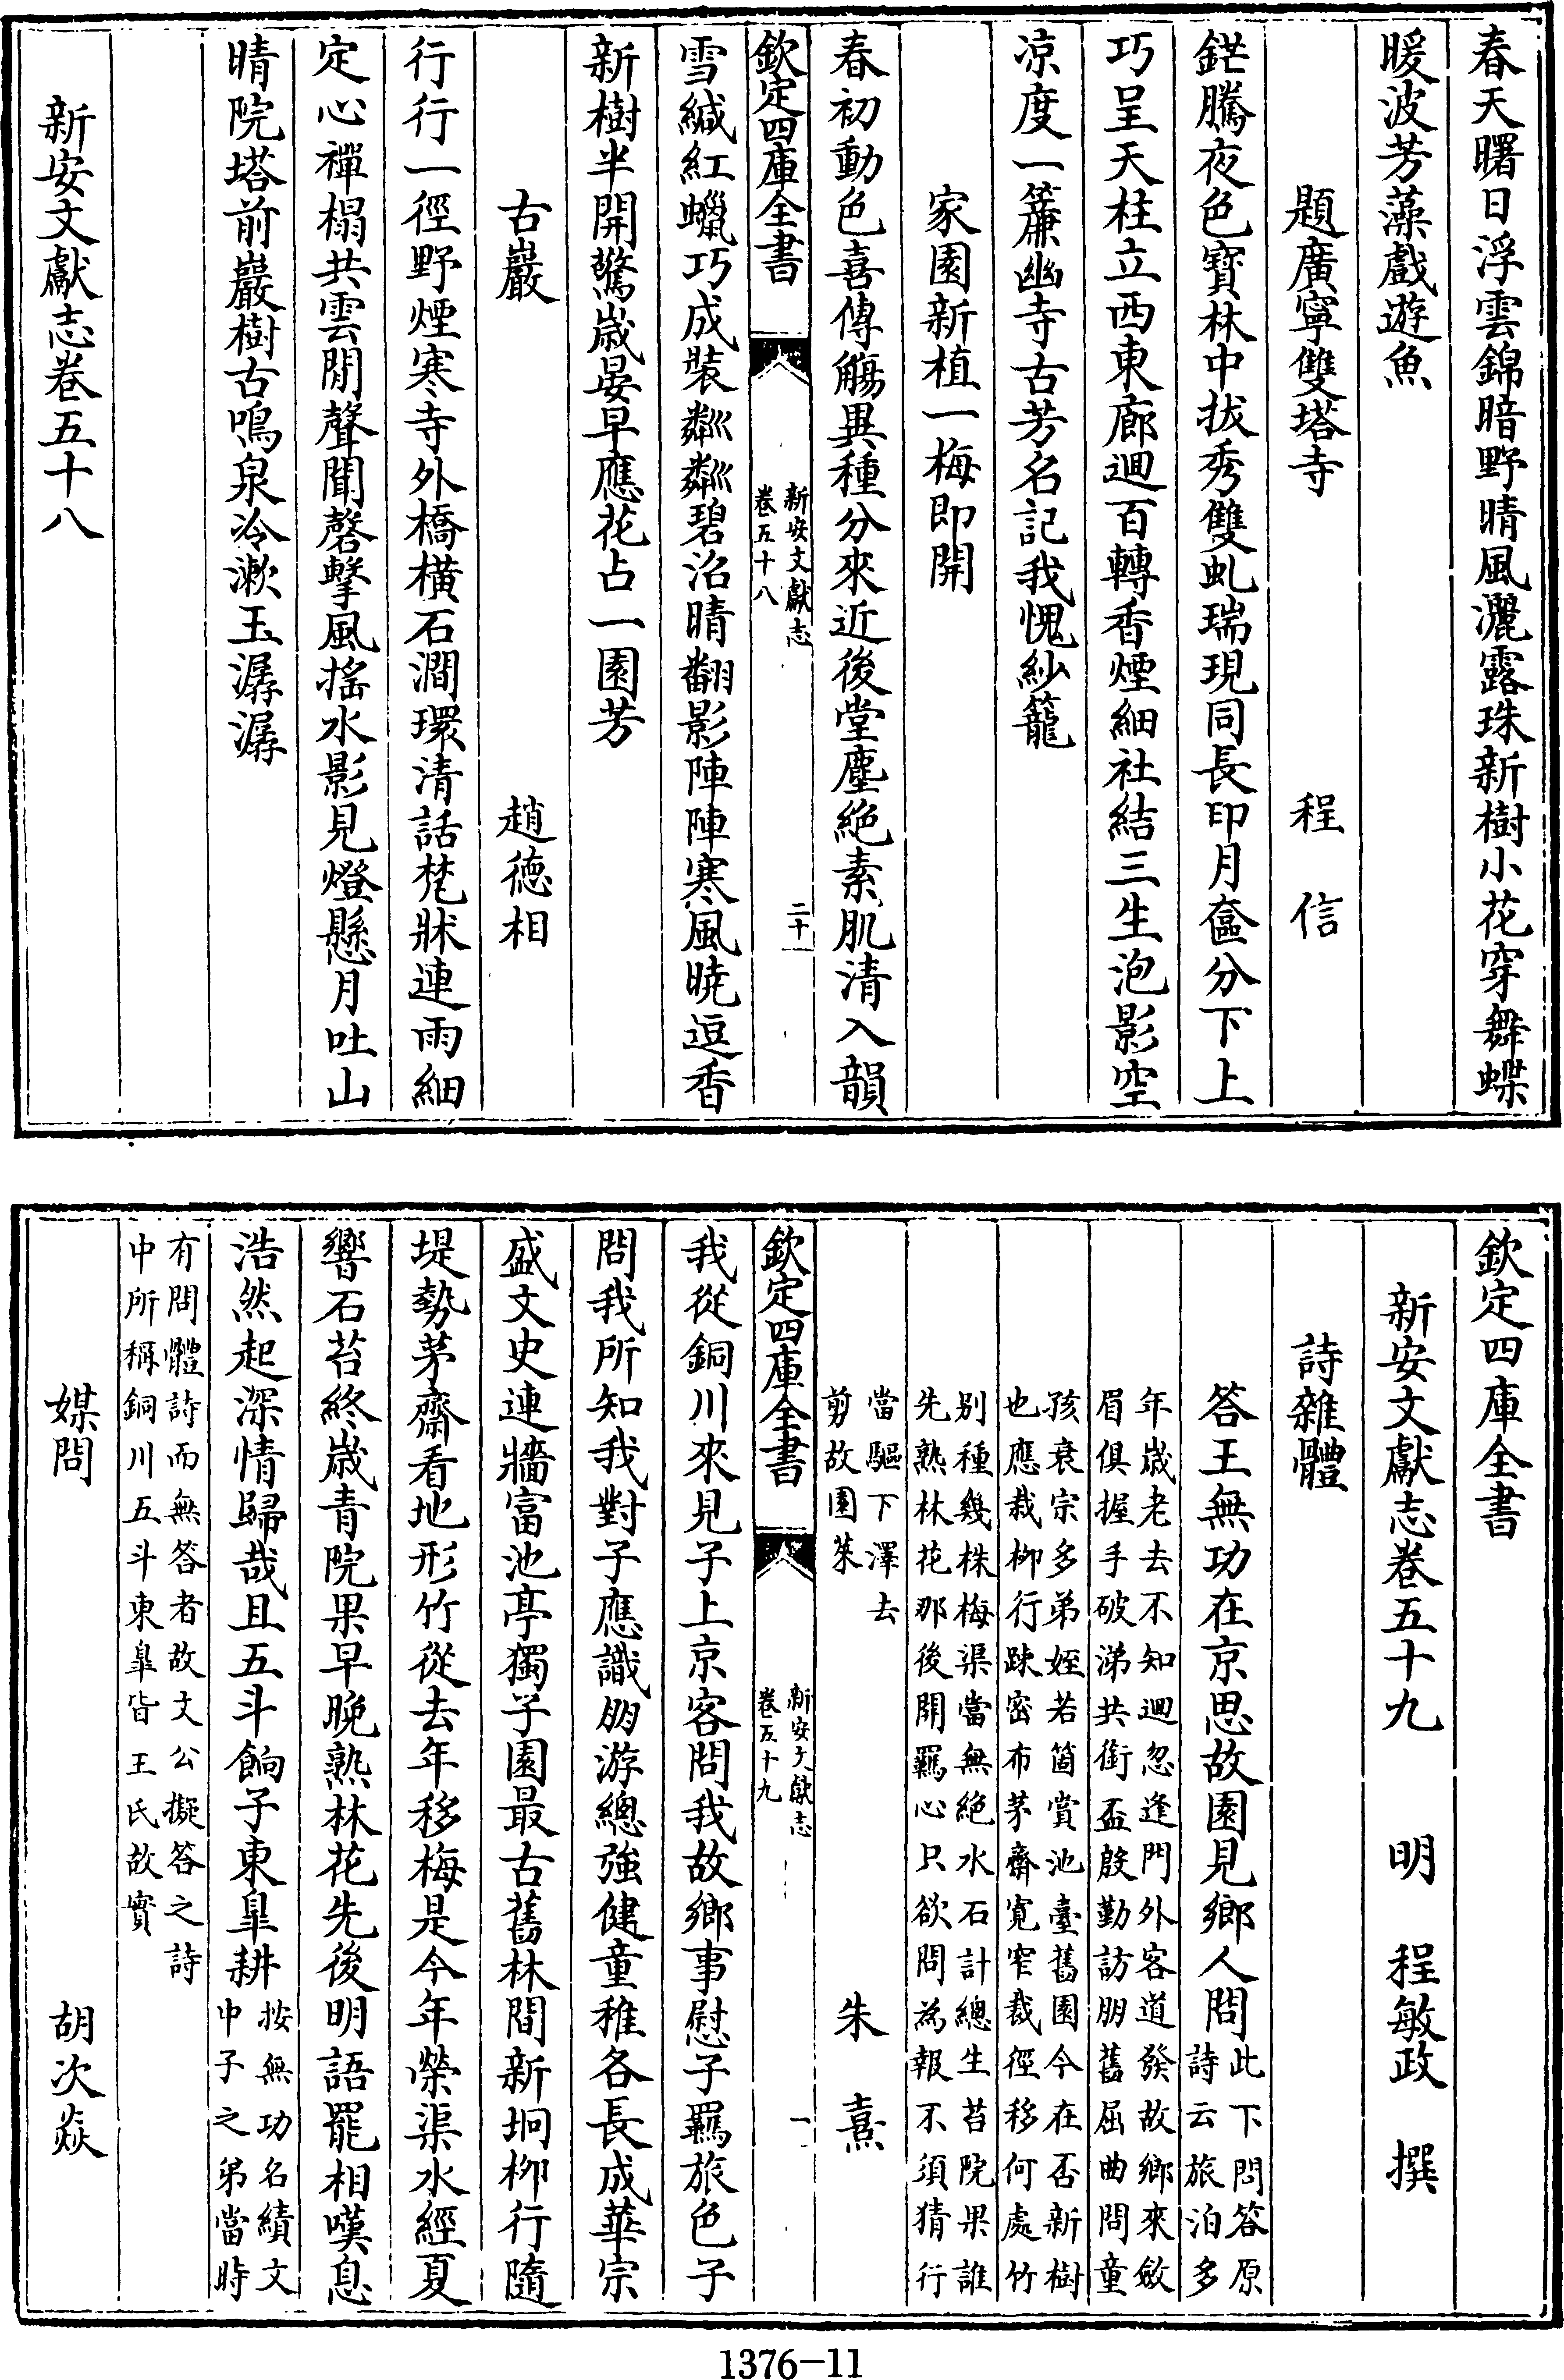 春天曙日浮雲錦暗野晴風灑露珠新樹小花穿舞蝶
暖波芳藻戲遊魚
題廣寧雙塔寺　程信
鋩騰夜色寶林中拔秀雙虬瑞現同長印月奩分下上
巧呈天柱立西東廊迴百轉香煙細社結三生泡影空
凉度一簾幽寺古芳名記我愧紗籠
家園新植一梅即開
春初動色喜傳觴異種分來近後堂塵絶素肌清入韻
欽定四庫全書
新安文獻志
卷五十八
二十一
雪緘紅蠟巧成裝粼粼碧沼晴翻影陣陣寒風曉逗香
新樹半開驚嵗晏早應花占一園芳
古巖　趙德相
行行一徑野煙寒寺外橋橫石澗環清話梵牀連雨細
定心禪榻共雲閒聲聞磬擊風搖水影見燈懸月吐山
晴院塔前巖樹古鳴泉冷漱玉潺潺
新安文獻志卷五十八
欽定四庫全書
新安文獻志卷五十九　明　程敏政　撰
詩雜體
答王無功在京思故園見鄉人問
此下問答原
詩云旅泊多
年嵗老去不知迴忽逢門外客道發故鄉來斂
眉俱握手破涕共銜盃殷勤訪朋舊屈曲問童
孩衰宗多弟姪若箇賞池臺舊園今在否新樹
也應栽柳行踈密布茅齋寛窄裁徑移何處竹
别種幾株梅渠當無絶水石計總生苔院果誰
先熟林花那後開羈心只欲問為報不須猜行
當驅下澤去
剪故園萊
朱熹
欽定四庫全書
新安文獻志
卷五十九
一
我從銅川來見子上京客問我故鄉事慰子羈旅色子
問我所知我對子應識朋游總強健童稚各長成華宗
盛文史連牆富池亭獨子園最古舊林間新坰柳行隨
堤勢茅齋看地形竹從去年移梅是今年榮渠水經夏
響石苔終嵗青院果早晚熟林花先後明語罷相嘆息
浩然起深情歸哉且五斗餉子東臯耕
按無功名績文
中子之弟當時
有問體詩而無答者故文公擬答之詩
中所稱銅川五斗東臯皆王氏故實
媒問　胡次焱
1376-11